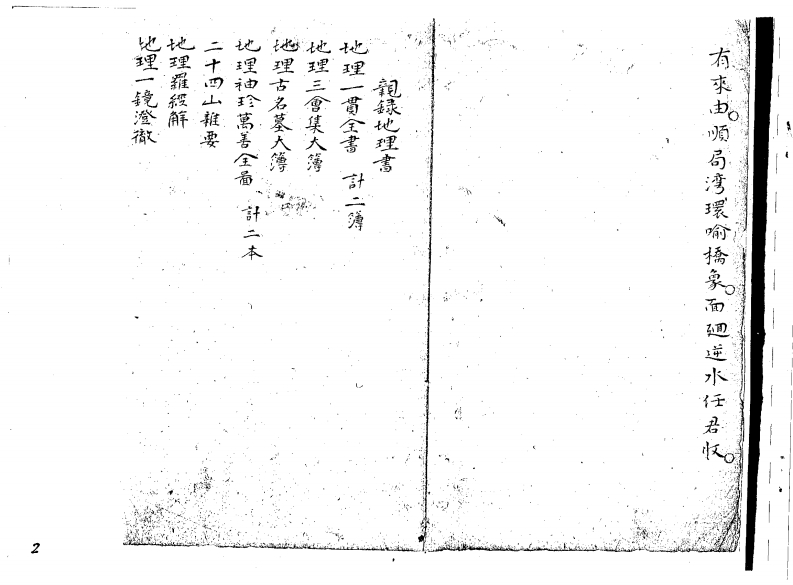 有來由。順局湾環喻橋象。面廻逆水任君收。
親録地理書
地理一貫全書 計二簿
地理三會集大簿
地理古名墓大簿
地理袖珍萬善全啚 計二本
二十四山雜要
地理羅經解
地理一鏡澄徹
2